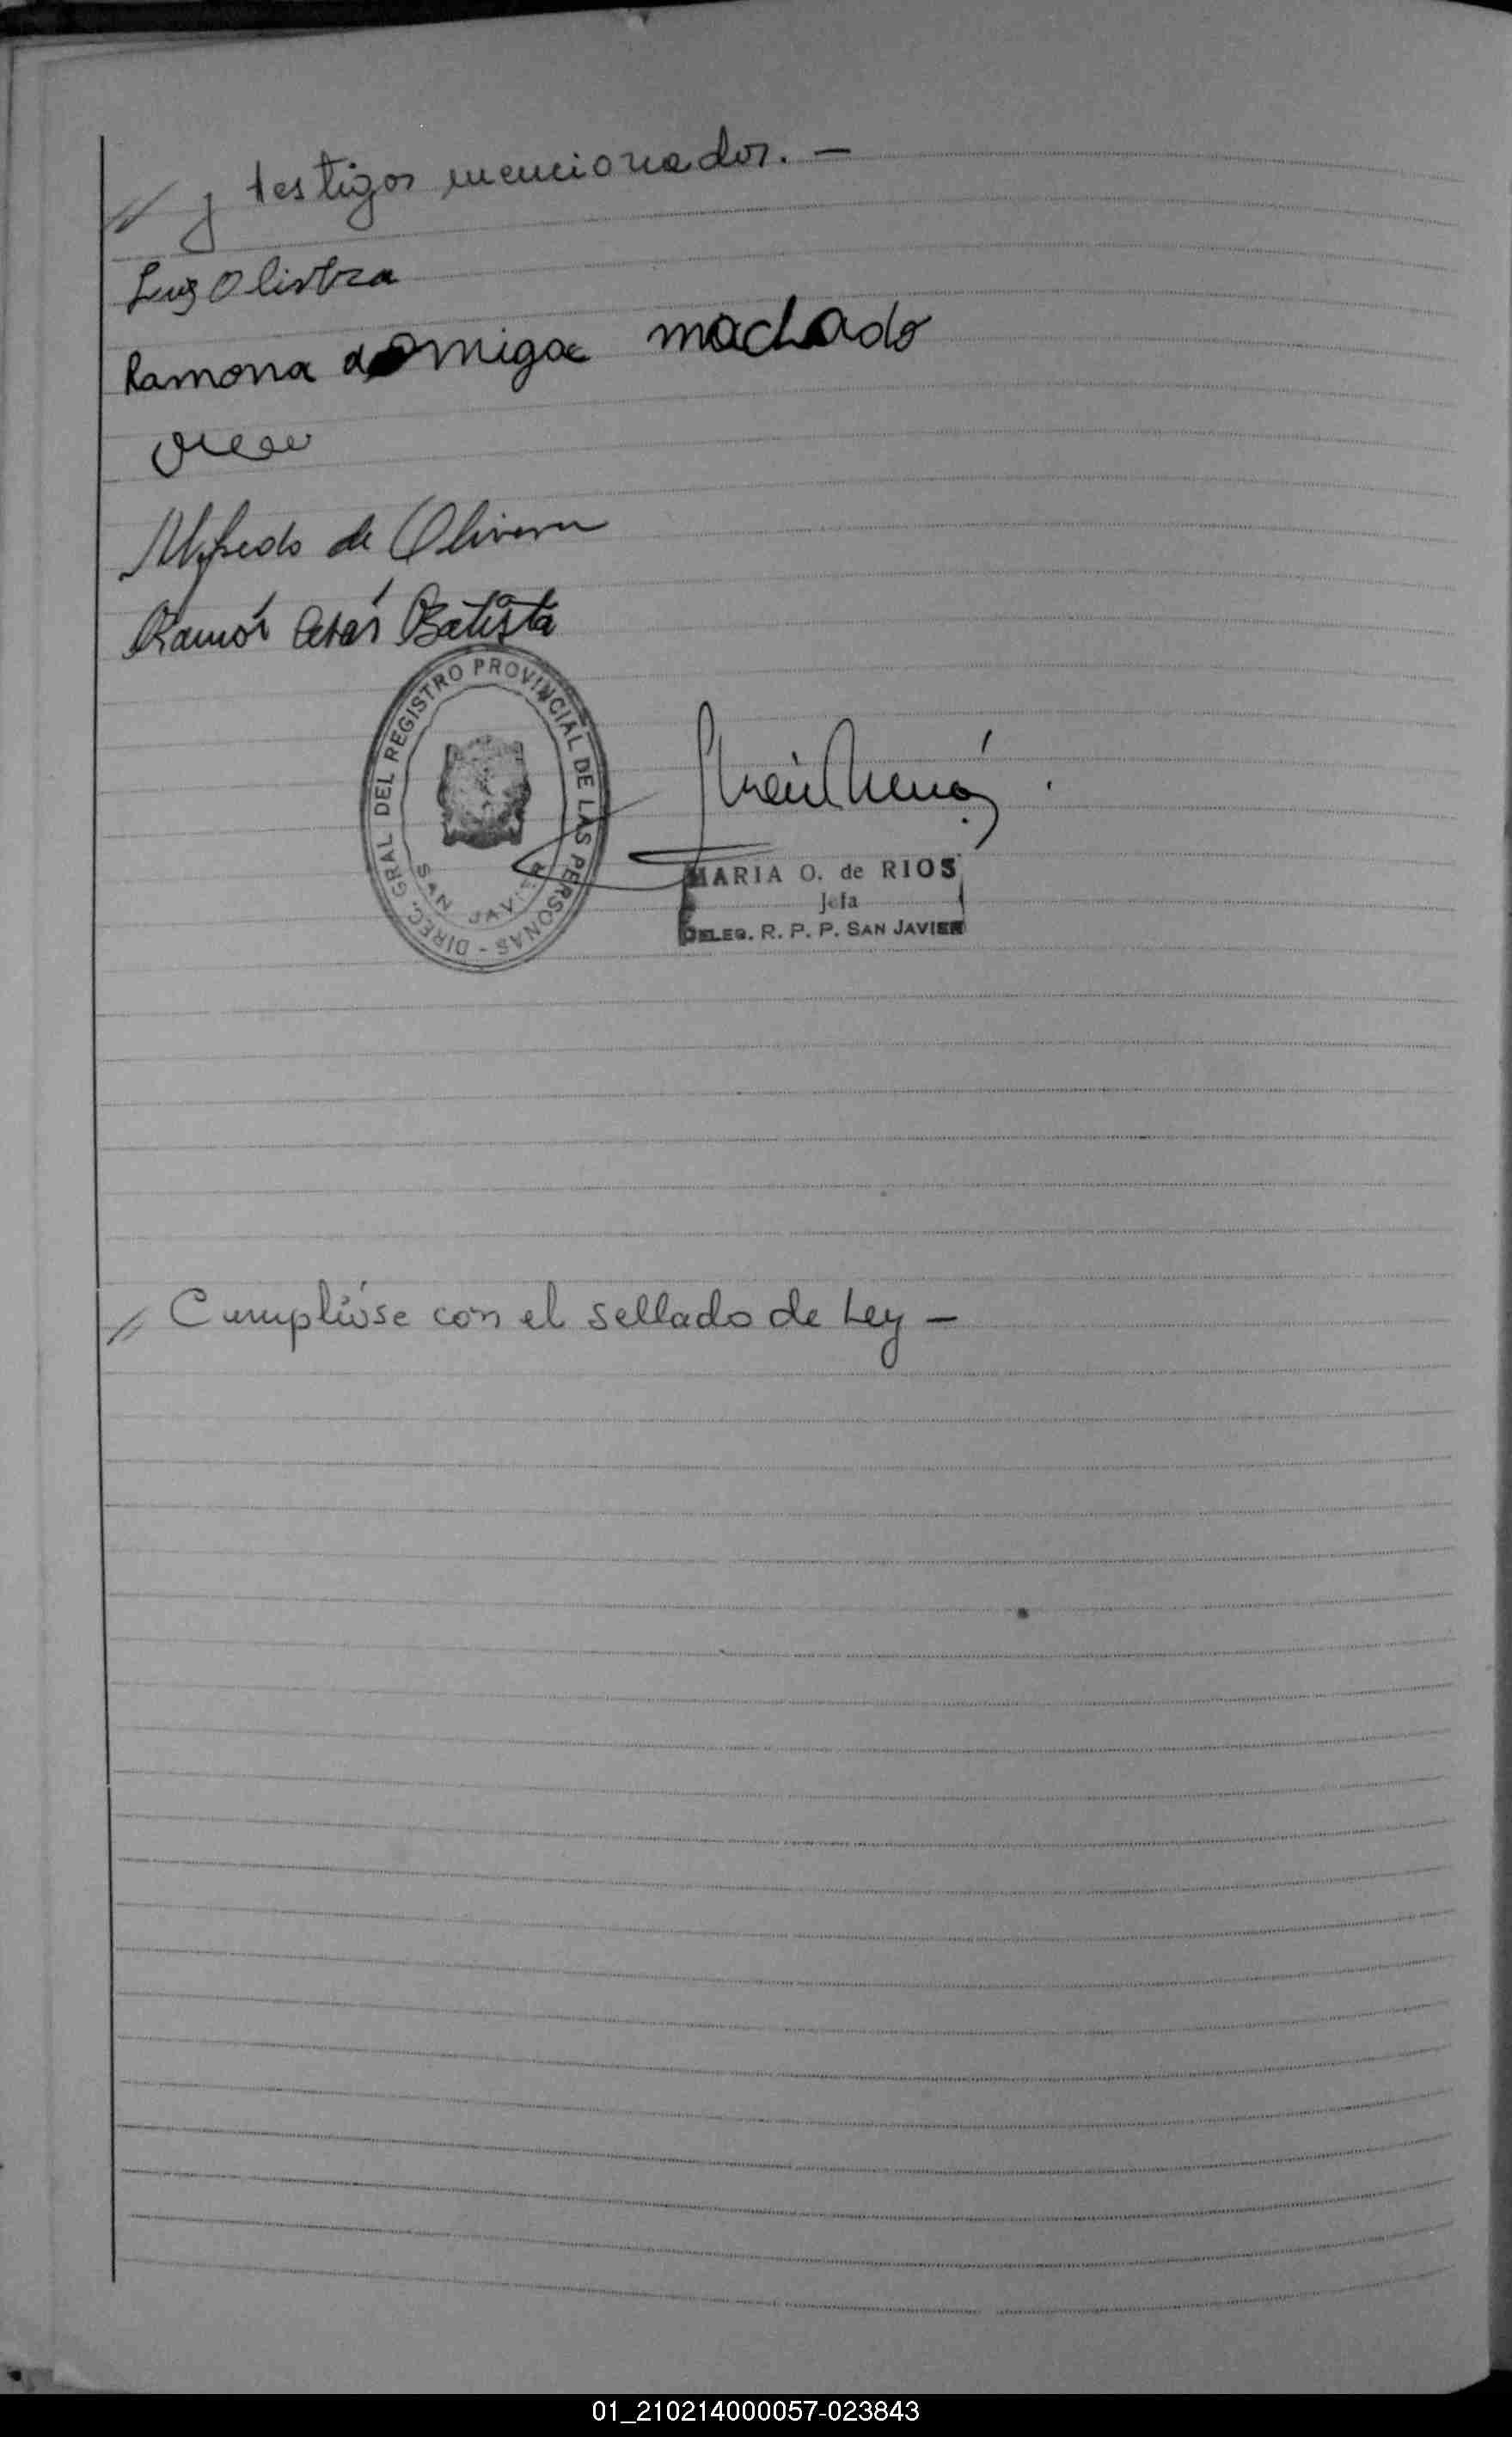 // y testigos mencionados. —
Luis Olivera
Ramona
machado
Alfredo de Olivera
Ramón César Batista
DIREC. GRAL DEL REGISTRO PROVINCIAL DE LAS PERSONAS -
SAN JAVIER
MARIA O. de RIOS
Jefa
DELEG. R. P. P. SAN JAVIER
// Cumplióse con el sellado de Ley —
01_210214000057-023843